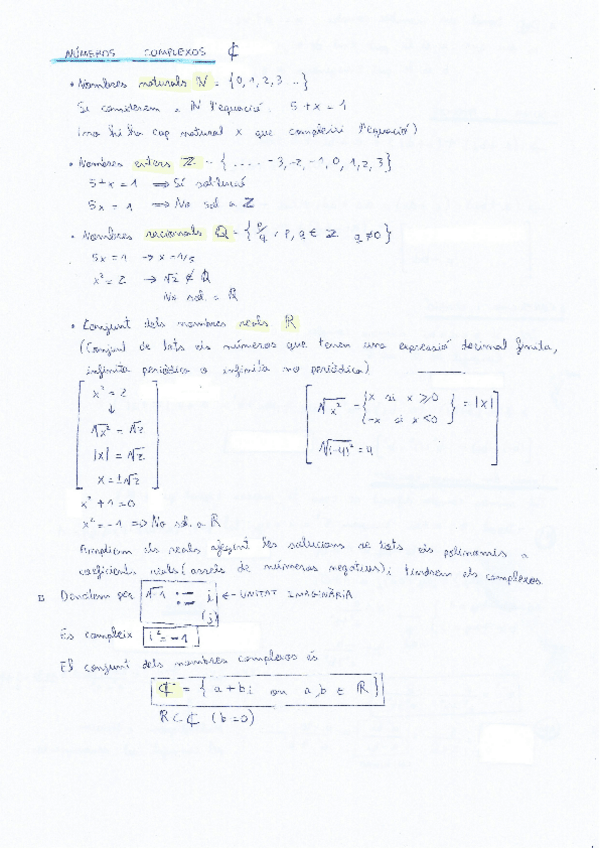 NÚMEROS COMPLEXOS ℂ
• Nombres naturals N = {0, 1, 2, 3 ...}
Si considerem a N l'equació 5 + x = 1
(no hi ha cap natural x que compleixi l'equació)
• Nombres enters Z = {.... -3, -2, -1, 0, 1, 2, 3}
5 + x = 1 ⟹ Sí solució
5x = 1 ⟹ No sol a Z
• Nombres racionals Q = {p/q : p, q ∈ Z q ≠ 0}
5x = 1 → x = 1/5
x² = 2 → √2 ∉ Q
No sol. a Q
• Conjunt dels nombres reals R
(Conjunt de tots els números que tenen una expressió decimal finita,
infinita periòdica o infinita no periòdica)
x² = 2
↓
√x² = √2
|x| = √2
x = ±√2
√x² = {x si x ≥ 0
-x si x < 0} = |x|
√(-4)² = 4
x² + 1 = 0
x² = -1 ⟹ No sol. a R
Ampliem els reals afegint les solucions de tots els polinomis a
coeficients reals (arrels de números negatius) i tindrem els complexos
Denotem per √-1 := i ← UNITAT IMAGINÀRIA
(j)
Es compleix i² = -1
El conjunt dels nombres complexos és
ℂ = {a + bi on a, b ∈ R}
R ⊂ ℂ (b = 0)